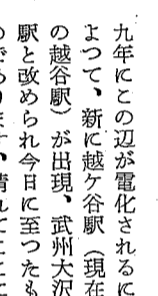 九年にこの辺が電化されるに
よつて、新に越ケ谷駅（現在
の越谷駅）が出現、武州大沢
駅と改められ今日に至つたも